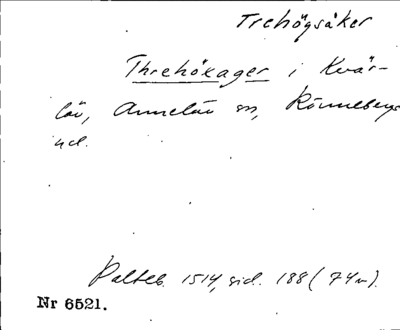 Trehögsåker
Threhökager i Kvär-
löv, Annelöv sn, Rönnebergs
hd.
Palteb. 1514, sid. 188 (74v).
Nr 6521.